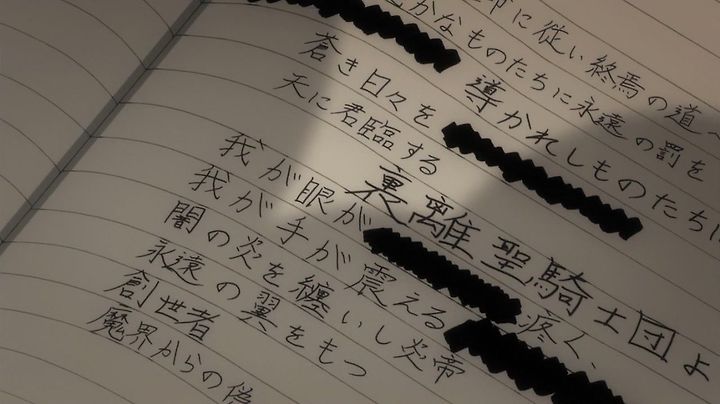 に従い終焉の道へ
かなものたちに永遠の罰を
導かれしものたちに
蒼き日々を
天に君臨する 裏離聖騎士団よ
我が眼が 疼く、
我が手が震える
闇の炎を纏いし炎帝
永遠の翼をもつ
創世者
魔界からの偽